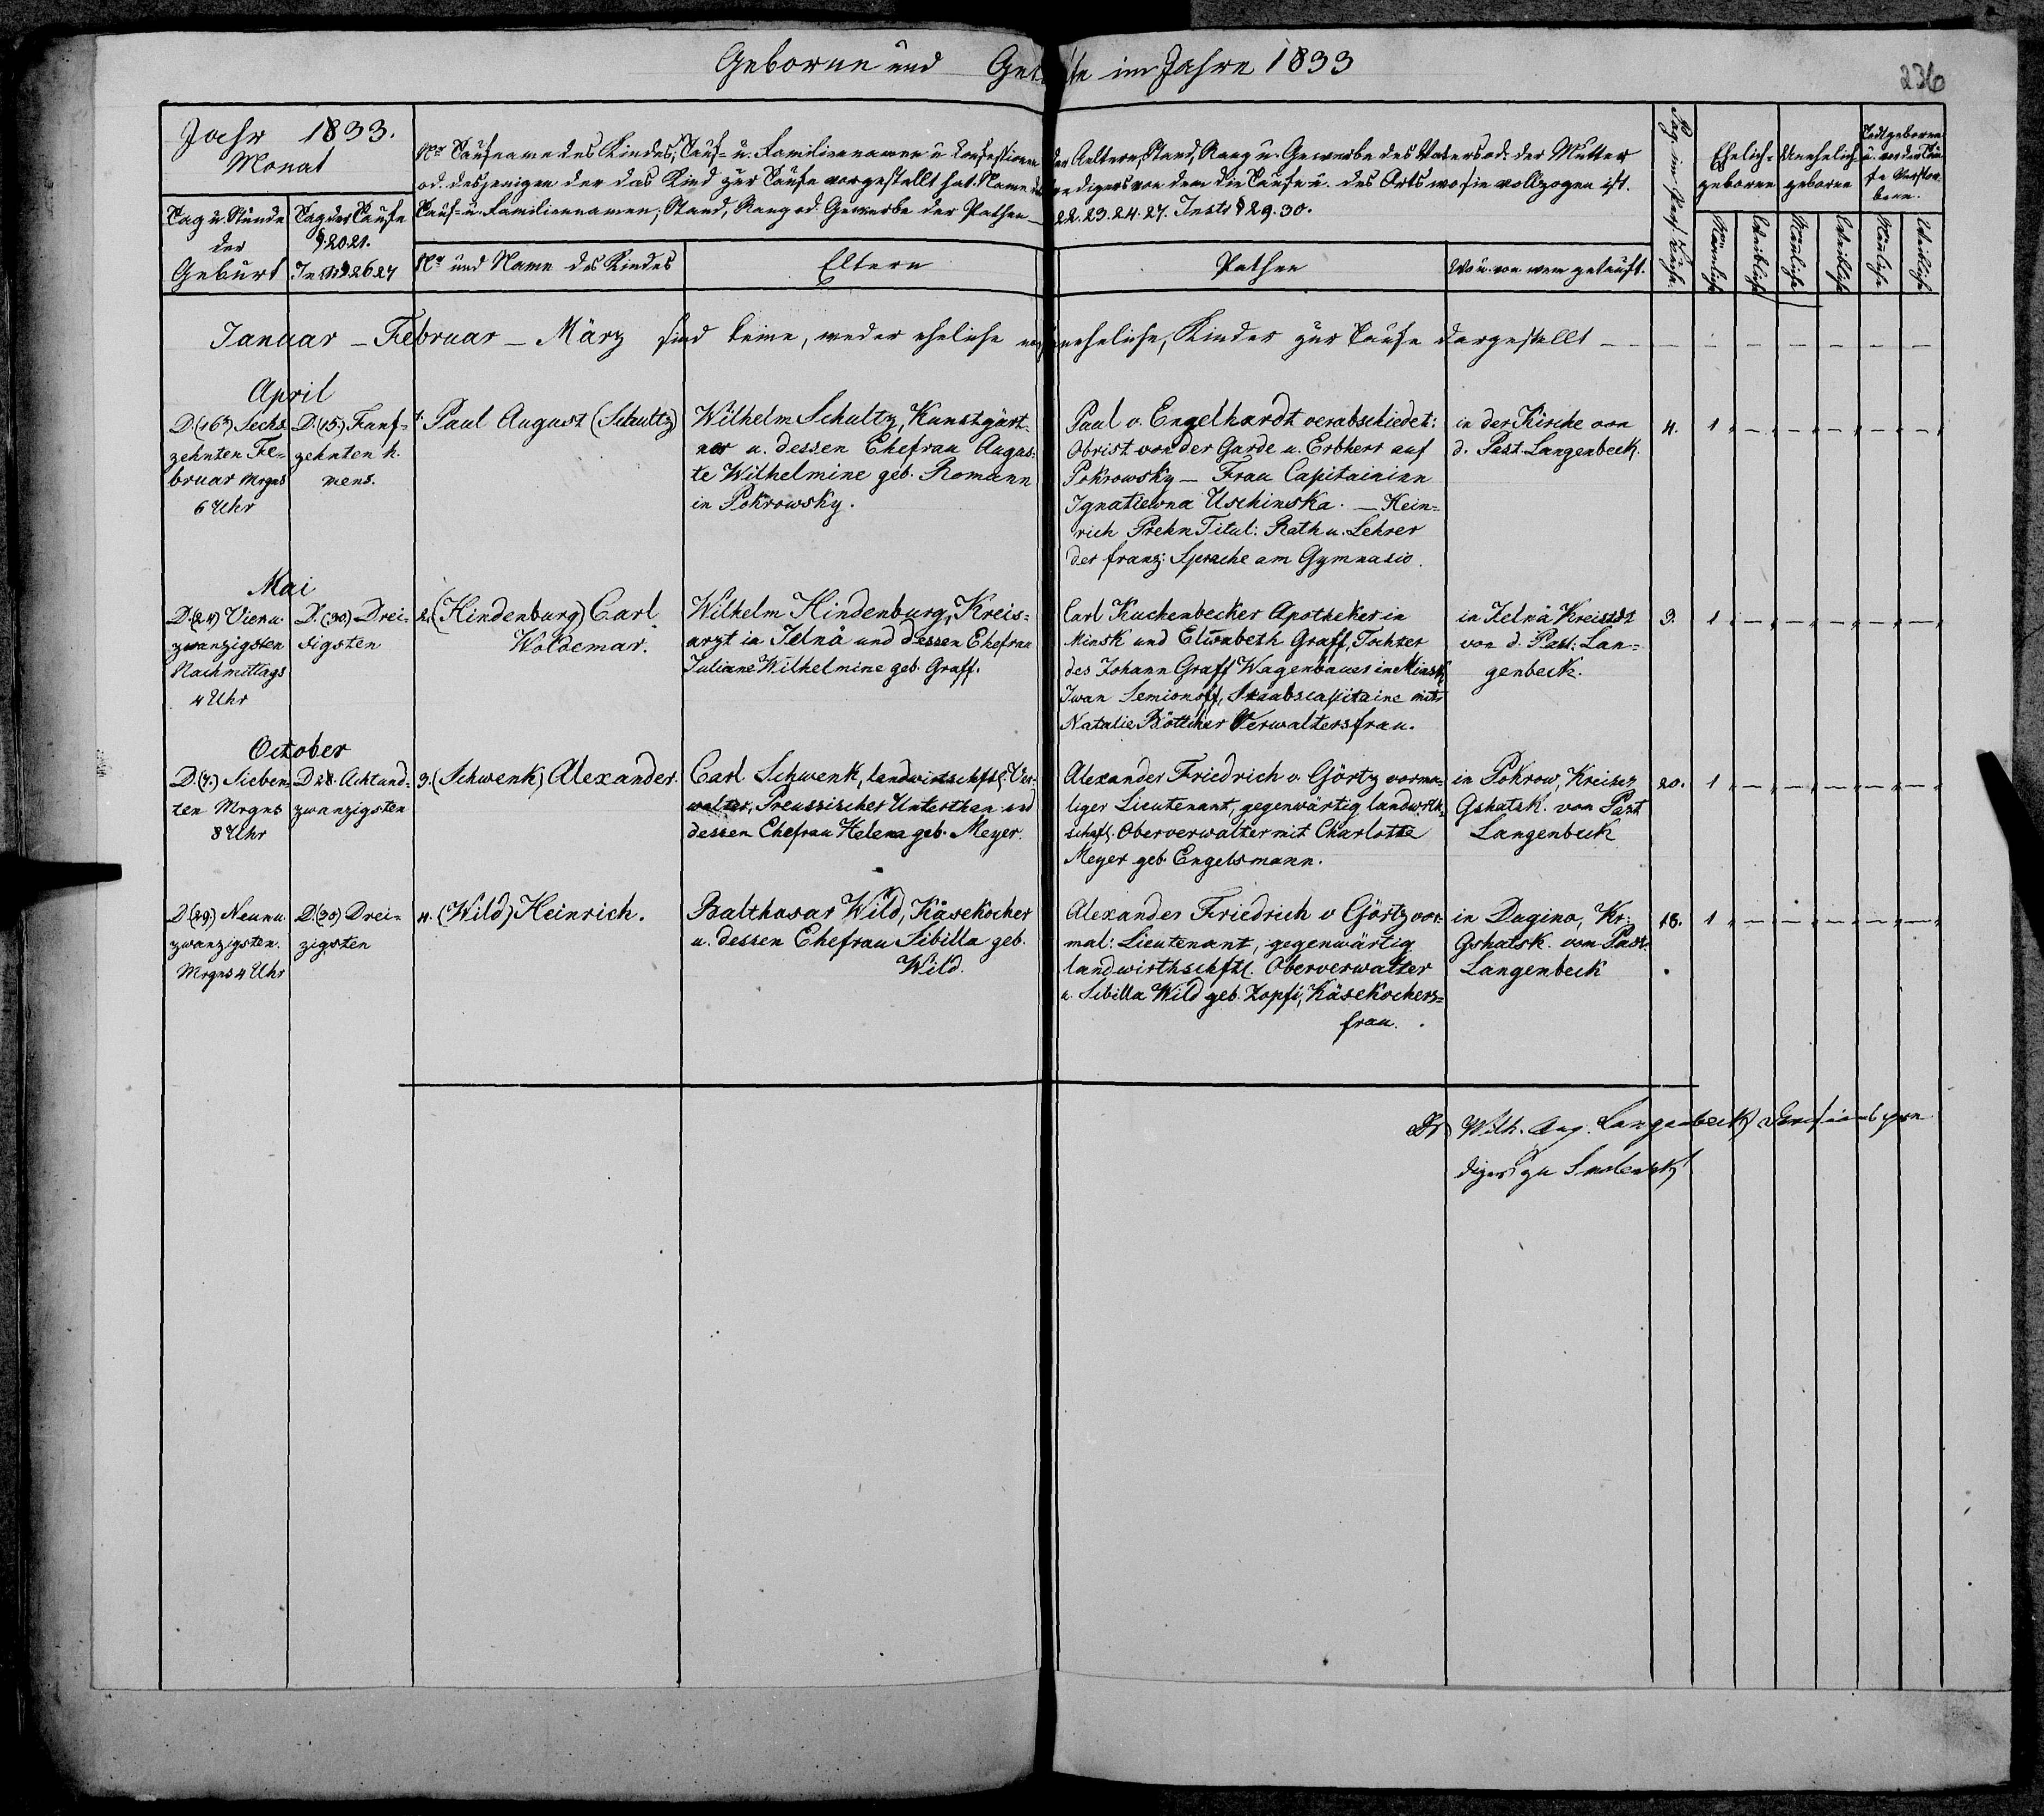 Geborne und Getaufte im Jahre 1833
236
Jahr 1833.
Monat
Tag u. Stunde
der
Geburt
Tag der Taufe
§. 20. 21.
Inst. § 26 27
No Taufname des Kindes, Tauf- u. Familiennamen u Confessionen der Aeltern, Stand, Rang u. Gewerbe des Vaters od. der Mutter
od. desjenigen der das Kind zur Taufe vorgestellt hat. Name des Predigers von dem die Taufe u. des Orts wo sie vollzogen ist.
Tauf- u. Familiennamen, Stand, Rang od. Gewerbe der Pathen — 22. 23. 24. 27. Inst: § 29. 30.
No und Name des Kindes
Eltern
Pathen
Wo u. von wem getauft.
Ehelich-
geborene
Unehelich
geborene
Todtgeborene
u. vor der Tau-
fe Verstor-
bene.
Männlich
Weiblich
Männlich
Weiblich
Männlich
Weiblich
Januar – Februar – März sind keine, weder eheliche noch uneheliche, Kinder zur Taufe dargestellt
April
D. (16) Sechs
zehnten Fe=
bruar Mrgns
6 Uhr
D. (15.) Funf=
zehnten h.
mens.
1. Paul August (Schultz)
Wilhelm Schultz, Kunstgärt=
ner u. dessen Ehefrau Augus=
te Wilhelmine geb. Romann
in Pokrowsky.
Paul v. Engelhardt verabschiedet:
Obrist von der Garde u. Erbherr auf
Pokrowsky — Frau Capitaininn
Ignatiewna Uschinska. — Hein=
rich Prehn Titul: Rath u. Lehrer
der franz: Sprache am Gymnasio.
in der Kirche von
d. Past. Langenbeck.
4. 1
Mai
D. (24) Vieru.
zwanzigsten
Nachmittags
4 Uhr
D. (30) Drei-
sigsten
2. (Hindenburg) Carl
Woldemar.
Wilhelm Hindenburg, Kreis=
arzt in Jelnä und dessen Ehefrau
Juliane Wilhelmine geb. Graff.
Carl Kuchenbecker Apotheker in
Minsk und Elisabeth Graff, Tochter
des Johann Graff Wagenbauer in Minsk
Iwan Semionoff, Staabscapitaine mit
Natalie Böttcher Verwaltersfrau.
in Jelnä Kreisstdt
von d. Past: Lan=
genbeck.
9. 1
October
D. (7.) Sieben=
ten Mrgns
8 Uhr
D 28. Achtund=
zwanzigsten
3. (Schwenk) Alexander.
Carl Schwenk, landwirtschftl. Ver=
walter, Preussischer Unterthan und
dessen Ehefrau Helena geb. Meyer.
Alexander Friedrich v. Görtz vorma=
liger Lieutenant, gegenwärtig landwrth=
schaftl. Oberverwalter mit Charlotte
Meyer geb. Engelsmann.
in Pokrow, Kreises
Gshatsk. von Past
Langenbeck
20. 1
D. (29.) Neunu.
zwanzigsten.
Mrgns 4 Uhr
D. (30) Drei=
zigsten
4. (Wild) Heinrich.
Balthasar Wild, Käsekocher
u. dessen Ehefrau Sibilla geb.
Wild.
Alexander Friedrich v Görtz vor=
mal: Lieutenant, gegenwärtig
landwirthschftl. Oberverwalter
u. Sibilla Wild geb. Zopfi, Käsekochers=
frau.
in Dugino, Kr:
Gshatsk. von Past.
Langenbeck
18. 1
Dr Wilh. Aug. Langenbeck Divisionspre
diger zu Smolensk